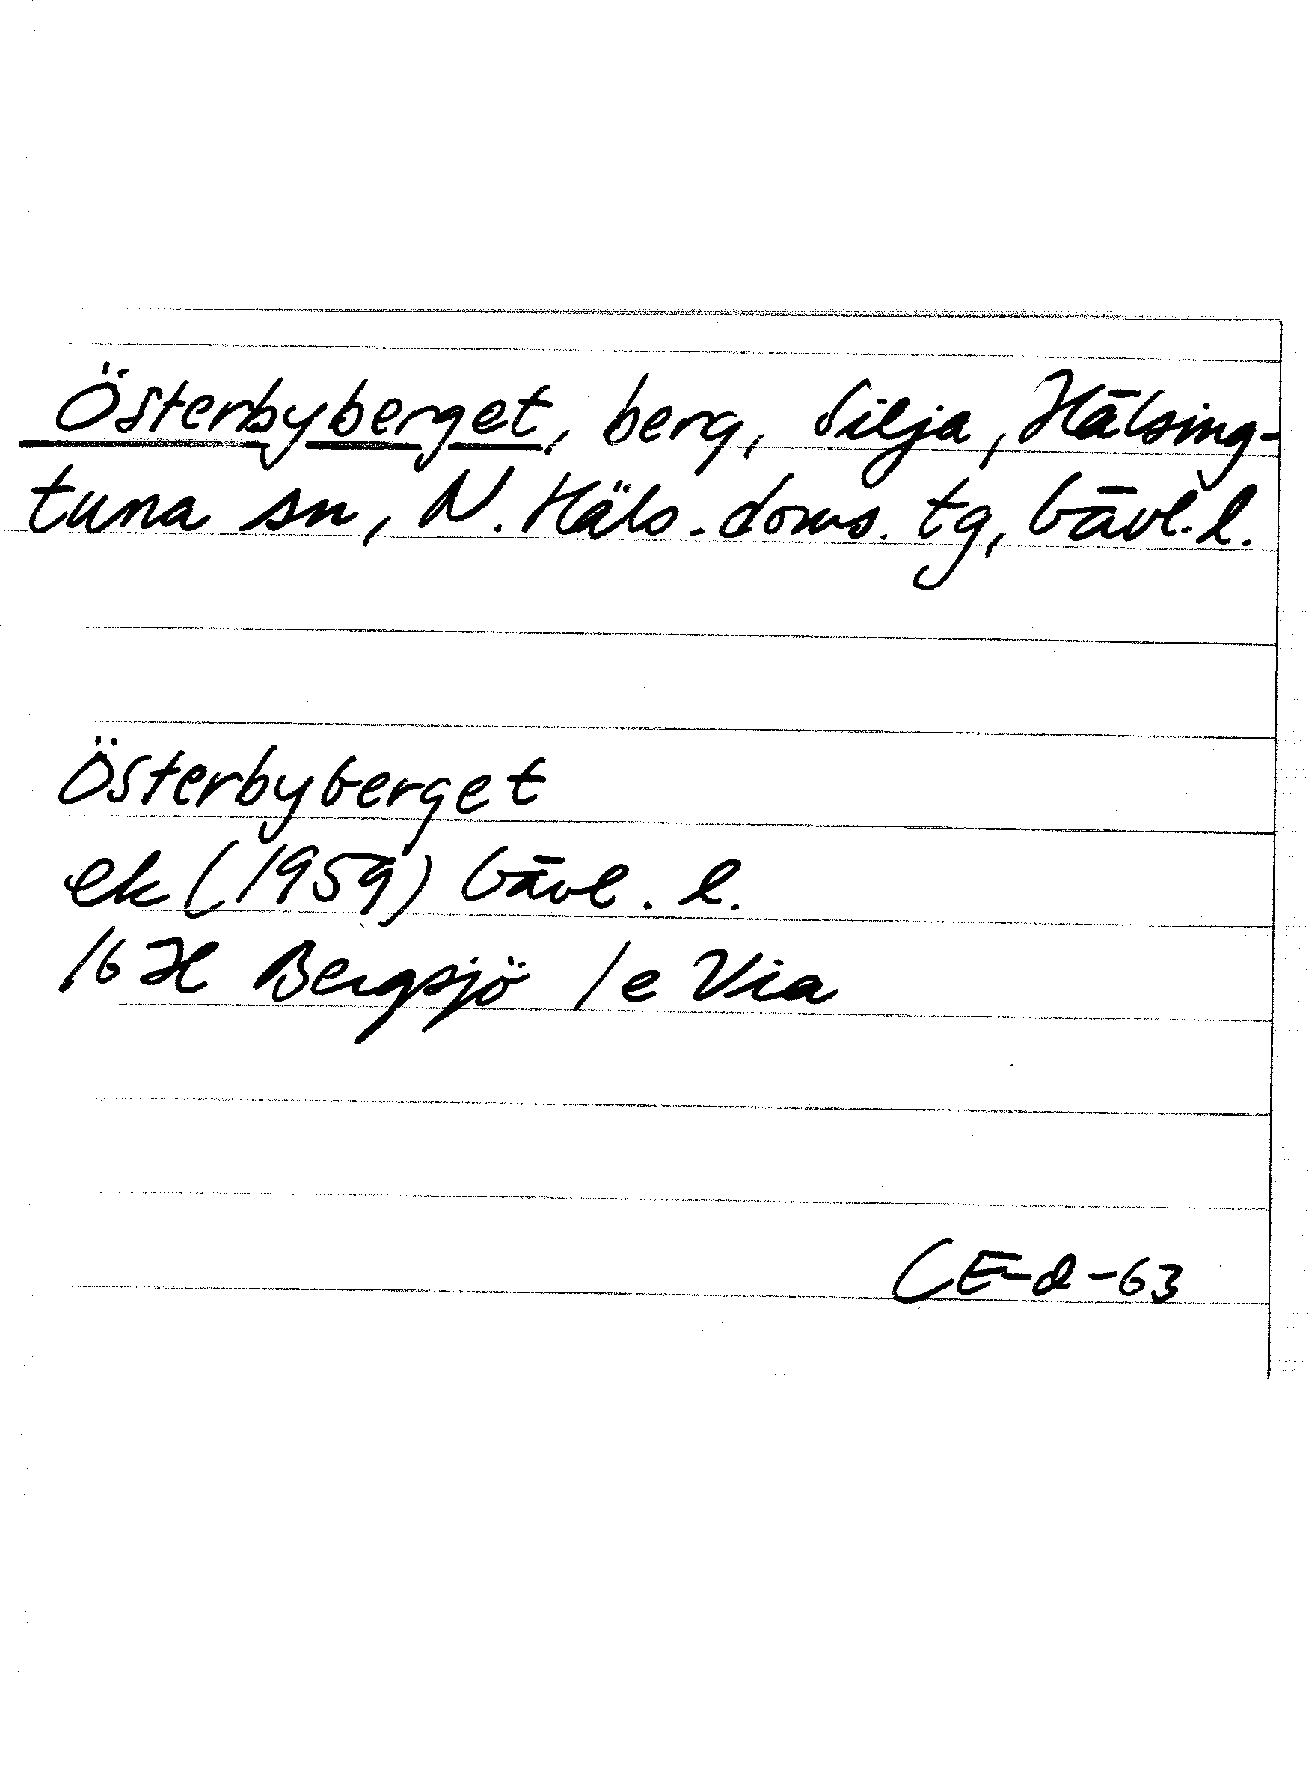 Österbyberget, berg, Silja, Hälsing-
tuna sn, N. Häls. doms. tg, Gävl. l.
Österbyberget
ek (1959) Gävl. l.
16 H Bergsjö 1 e Via
CE-d-63